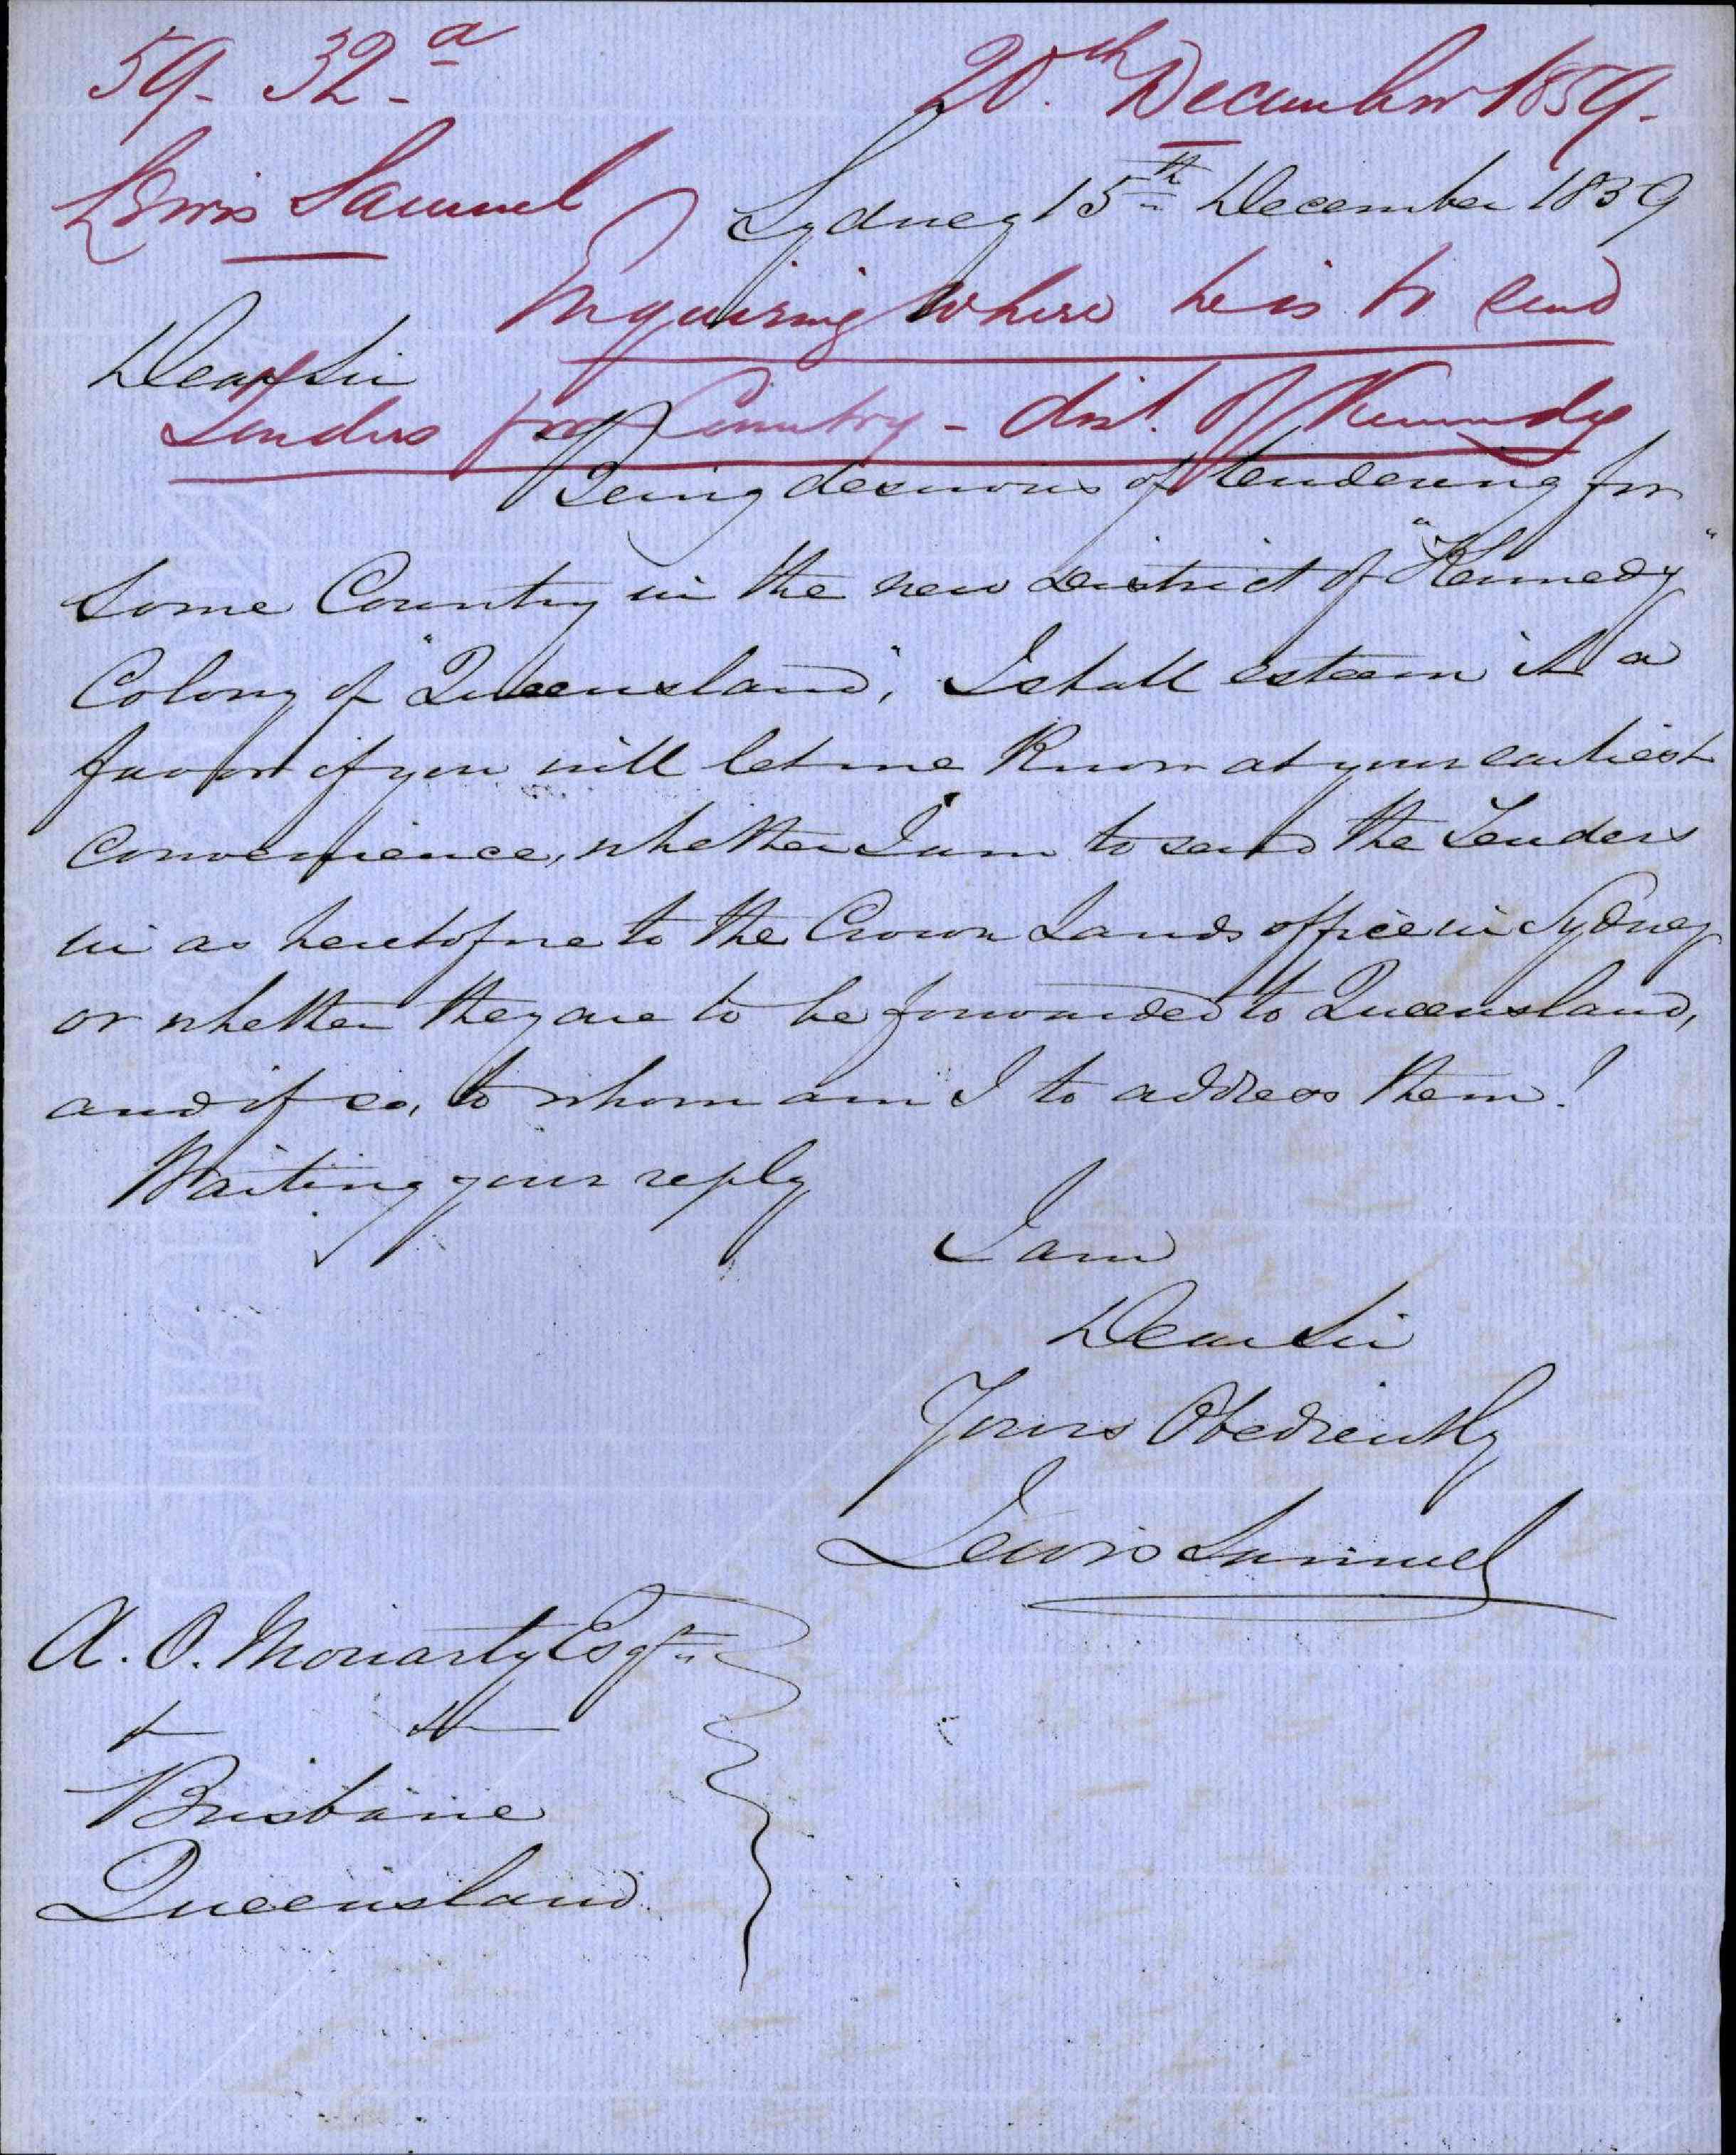 59-32-a
20th December 1859-
Lewis Samuel
Sydney 15th December 1859
Enquiring where he is to send
Dear Sir
Tenders for Country - dist. of Kennedy
Being desirous of tendering for
Some Country in the new District of "Kennedy"
Colony of "Queensland", I shall esteem it a
favor if you will let me know at your earliest
Convenience, whether I am to send the Tenders
in as heretofore to the Crown Lands office in Sydney
or whether they are to be forwarded to Queensland,
and if so, to whom am I to address them?
Waiting your reply
I am
Dear Sir
Yours Obediently
Lewis Samuel
A. O. Moriarty Esqre
Brisbane
Queensland